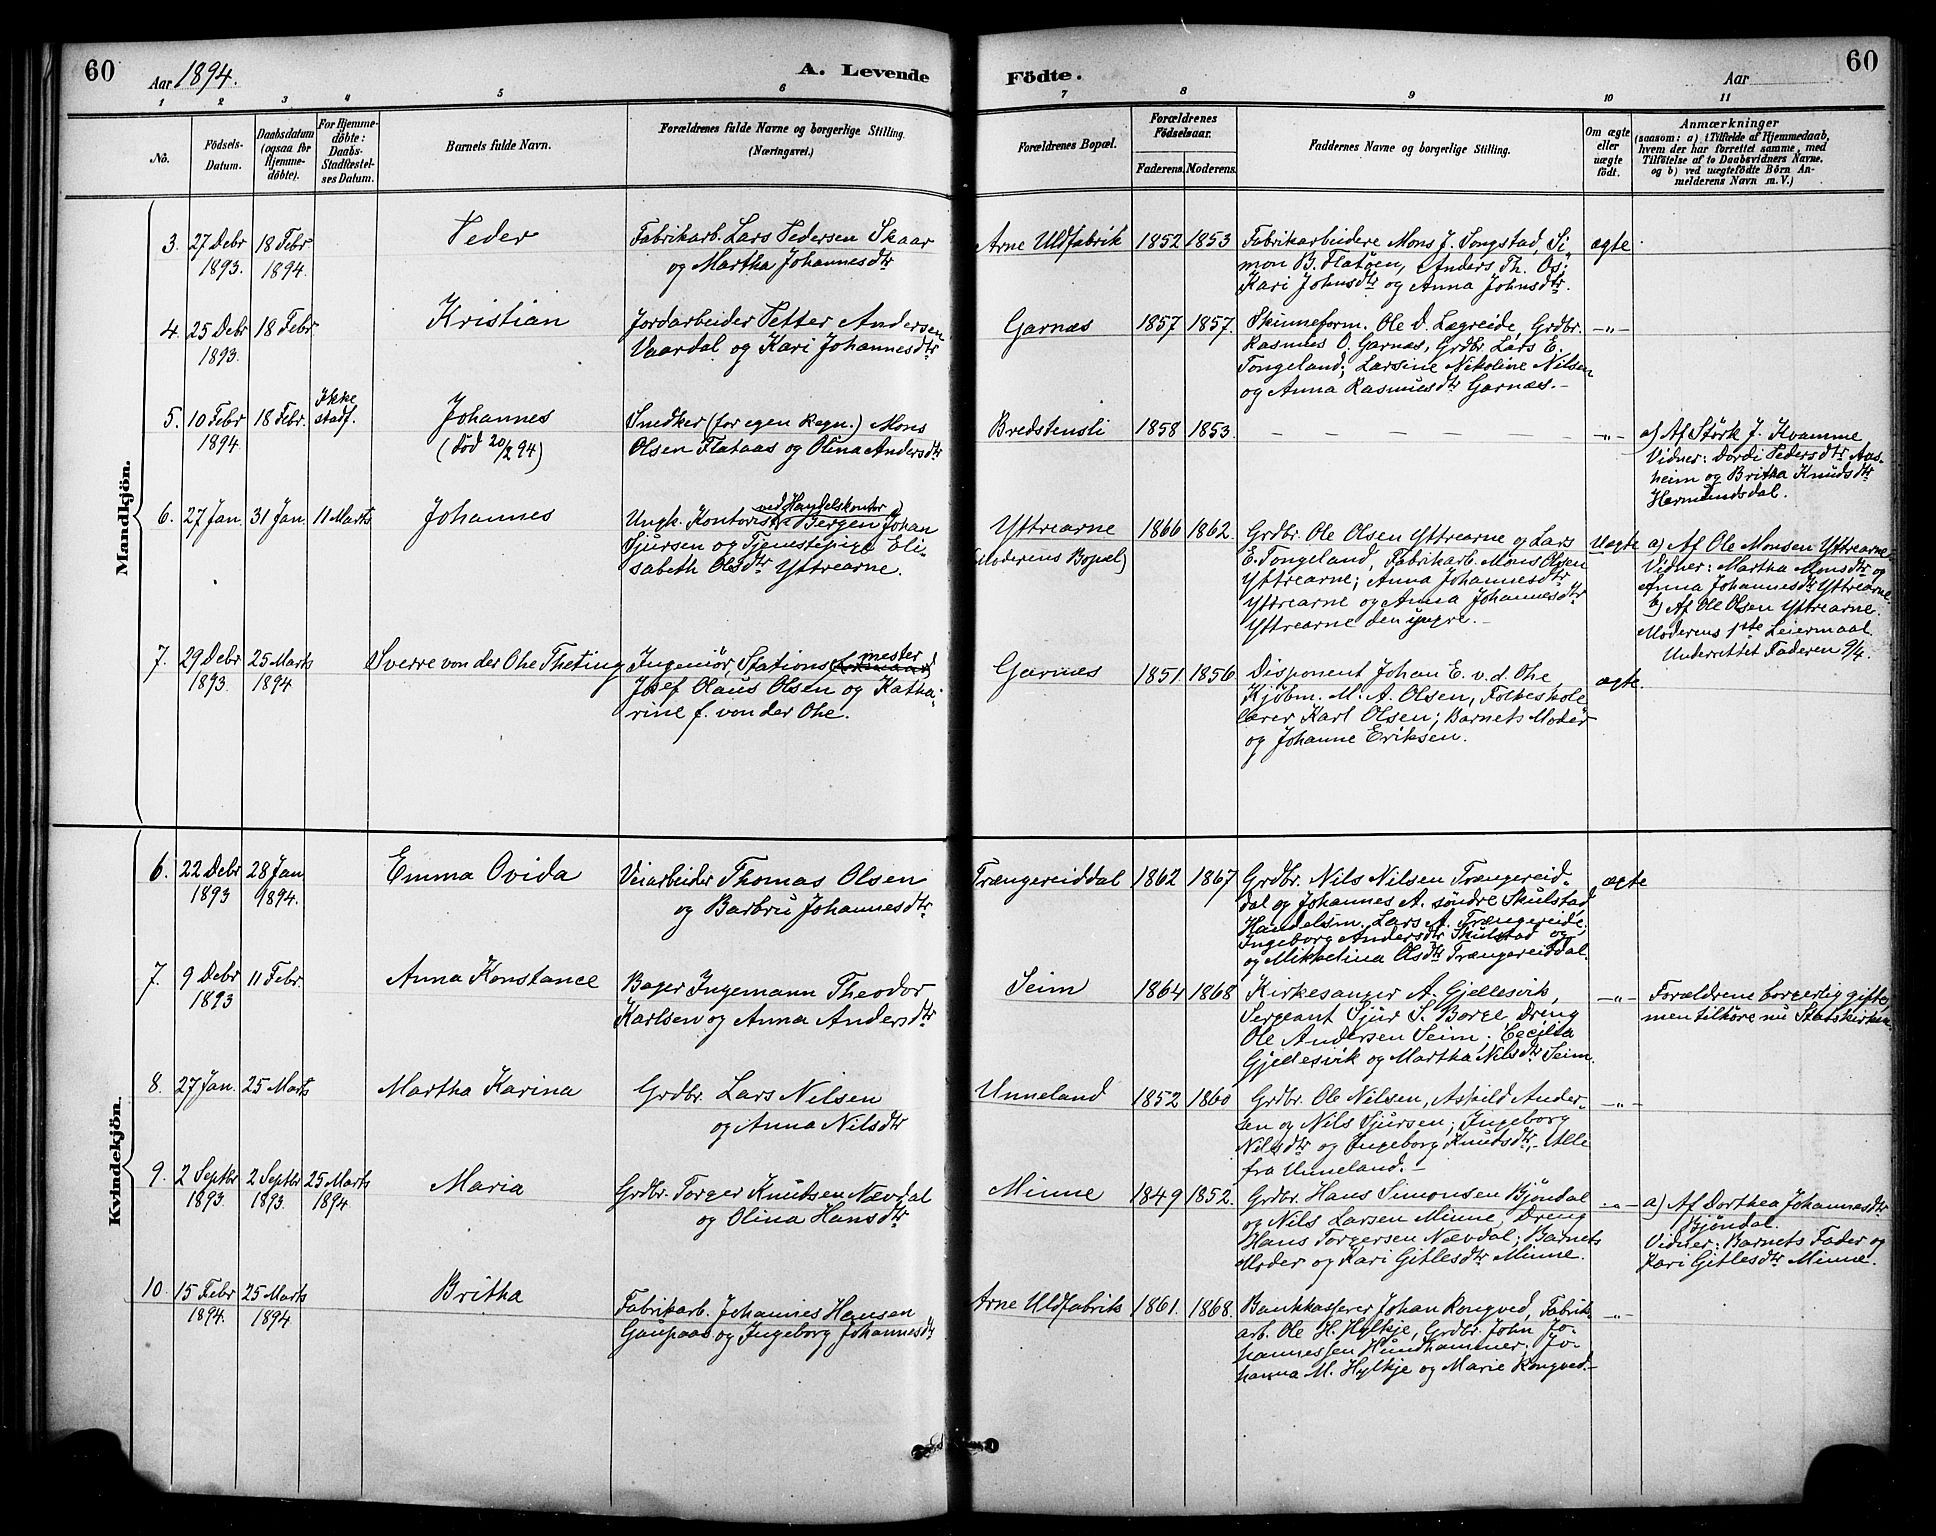 60
Aar 1894.
A. Levende
Födte.
Aar
60
1 2 3 4 5 6 7 8 9 10 11
No.
Födsels-
Datum.
Daabsdatum
(ogsaa for
Hjemme-
döbte).
For Hjemme-
döbte:
Daabs-
Stadfæstel-
ses Datum.
Barnets fulde Navn.
Forældrenes fulde Navne og borgerlige Stilling.
(Næringsvei.)
Forældrenes Bopæl.
Forældrenes
Födselsaar.
Faderens. Moderens.
Faddernes Navne og borgerlige Stilling.
Om ægte
eller
uægte
födt.
Anmærkninger
(saasom: a) i Tilfælde af Hjemmedaab,
hvem der har forrettet samme, med
Tilföielse af to Daabsvidners Navne.
og b) ved uægtefödte Börn An-
melderens Navn m. V.)
Mandkjön.
3.
27 Debr
1893.
18 Febr
1894.
Peder
Fabrikarb. Lars Pedersen Skaar
og Martha Johannesdtr
Arne Uldfabrik
1852 1853
Fabrikarbeidere Mons J. Songstad, Si-
mon B. Flatöen, Anders Th. Os;
Kari Johnsdtr og Anna Johnsdtr.
ægte
4.
25 Debr
1893.
18 Febr
Kristian
Jordarbeider Petter Andersen
Vaardal og Kari Johannesdtr
Garnæs
1857 1857.
Skinneform. Ole D. Lægreide, Grdbr.
Rasmus O. Garnæs, Grdbr. Lars E.
Tongeland; Larsine Nikoline Nilsen
og Anna Rasmusdtr Garnæs.-
-"-
5.
10 Febr
1894.
18 Febr.
Ikke
stadf.
Johannes
(död 20/2 94)
Snedker (for egen Regn.) Mons
Olsen Flataas og Olina Andersdtr
Bredstensli
1858 1853.
- - - - - - -
-"-
a) Af Störk J. Kvamme
Vidner: Dordi Pedersdtr Aas-
heim og Britha Knudsdtr
Hermundsdal.
6.
27 Jan.
31 Jan.
11 Marts
Johannes
ved Handelskontor
Ungk. Kontorist Bergen Johan
Sjursen og Tjenestepige Eli-
sabeth Olsdtr Yttrearne.
Yttrearne
(Moderens Bopæl)
1866 1862.
Grdbr. Ole Olsen Yttrearne og Lars
E. Tongeland, Fabrikarb. Mons Olsen
Yttrearne; Anna Johannesdtr
Yttrearne og Anna Johannesdtr
Yttrearne den yngre.-
Uægte
a) Af Ole Monsen Yttrearne
Vidner: Martha Monsdtr og
Anna Johannesdtr Yttrearne.
b) Af Ole Olsen Yttrearne.
Moderens 1ste Leiermaal.
Underrettet Faderen 9/4.
7.
29 Debr
1893.
25 Marts
1894
Sverre von der Ohe Theting
mester
Ingeniör, Stations
Josef Olaus Olsen og Katha-
rine f. von der Ohe.
Garnes
1851 1856.
Disponent Johan E. v. d. Ohe,
Kjöbm. M. A. Olsen, Folkeskole
lærer Karl Olsen; Barnets Moder
og Johanne Eriksen.
ægte.
Kvindekjön.
6.
22 Debr
1893
28 Jan
1894.
Emma Ovida
Veiarbeider Thomas Olsen
og Barbru Johannesdtr
Trængereiddal
1862 1867
Grdbr. Nils Nilsen Trængereid-
dal og Johannes A. söndre Skulstad
Handelsm. Lars A. Trængereide;
Ingeborg Andersdtr Skulstad og
og Mikkelina Olsdtr Trængereiddal.
ægte
7.
9 Debr
1893
11 Febr.
Anna Konstance
Bager Ingemann Theodor
Karlsen og Anna Andersdtr
Seim
1864 1868
Kirkesanger A. Gjellesvik,
Sergeant Sjur S. Borge, Dreng
Ole Andersen Seim; Cecilia
Gjellesvik og Martha Nilsdtr Seim.
-"-
Forældrene borgerlig gifte,
men tilhöre nu Statskirken.
8.
27 Jan.
25 Marts
Martha Karina
Grdbr. Lars Nilsen
og Anna Nilsdtr
Unneland
1852 1860
Grdbr. Ole Nilsen, Askild Ander-
sen og Nils Sjursen; Ingeborg
Nilsdtr og Ingeborg Knudsdtr, Alle
fra Unneland.-
-"-
9.
2 Septbr
1893.
2 Septbr
1893.
25 Marts
1894
Maria
Grdbr. Torger Knudsen Nævdal
og Olina Hansdtr
Minne
1849 1852.
Grdbr. Hans Simonsen Bjöndal
og Nils Larsen Minne, Dreng
Hans Torgersen Nævdal; Barnets
Moder og Kari Gitlesdtr Minne.
-"-
a) Af Dorthea Johannesdtr
Bjöndal.
Vidner: Barnets Fader og
Kari Gitlesdtr Minne.
10.
15 Febr
1894.
25 Marts
1894
Britha
Fabrikarb. Johannes Hansen
Gaupaas og Ingeborg Johannesdtr
Arne Uldfabrik
1861. 1868.
Bankkasserer Johan Rongved, Fabrik-
arb. Ole H. Hylkje, Grdbr. John Jo-
hannessen Hundhammer; Jo-
hanna M. Hylkje og Marie Rongved.-
-"-